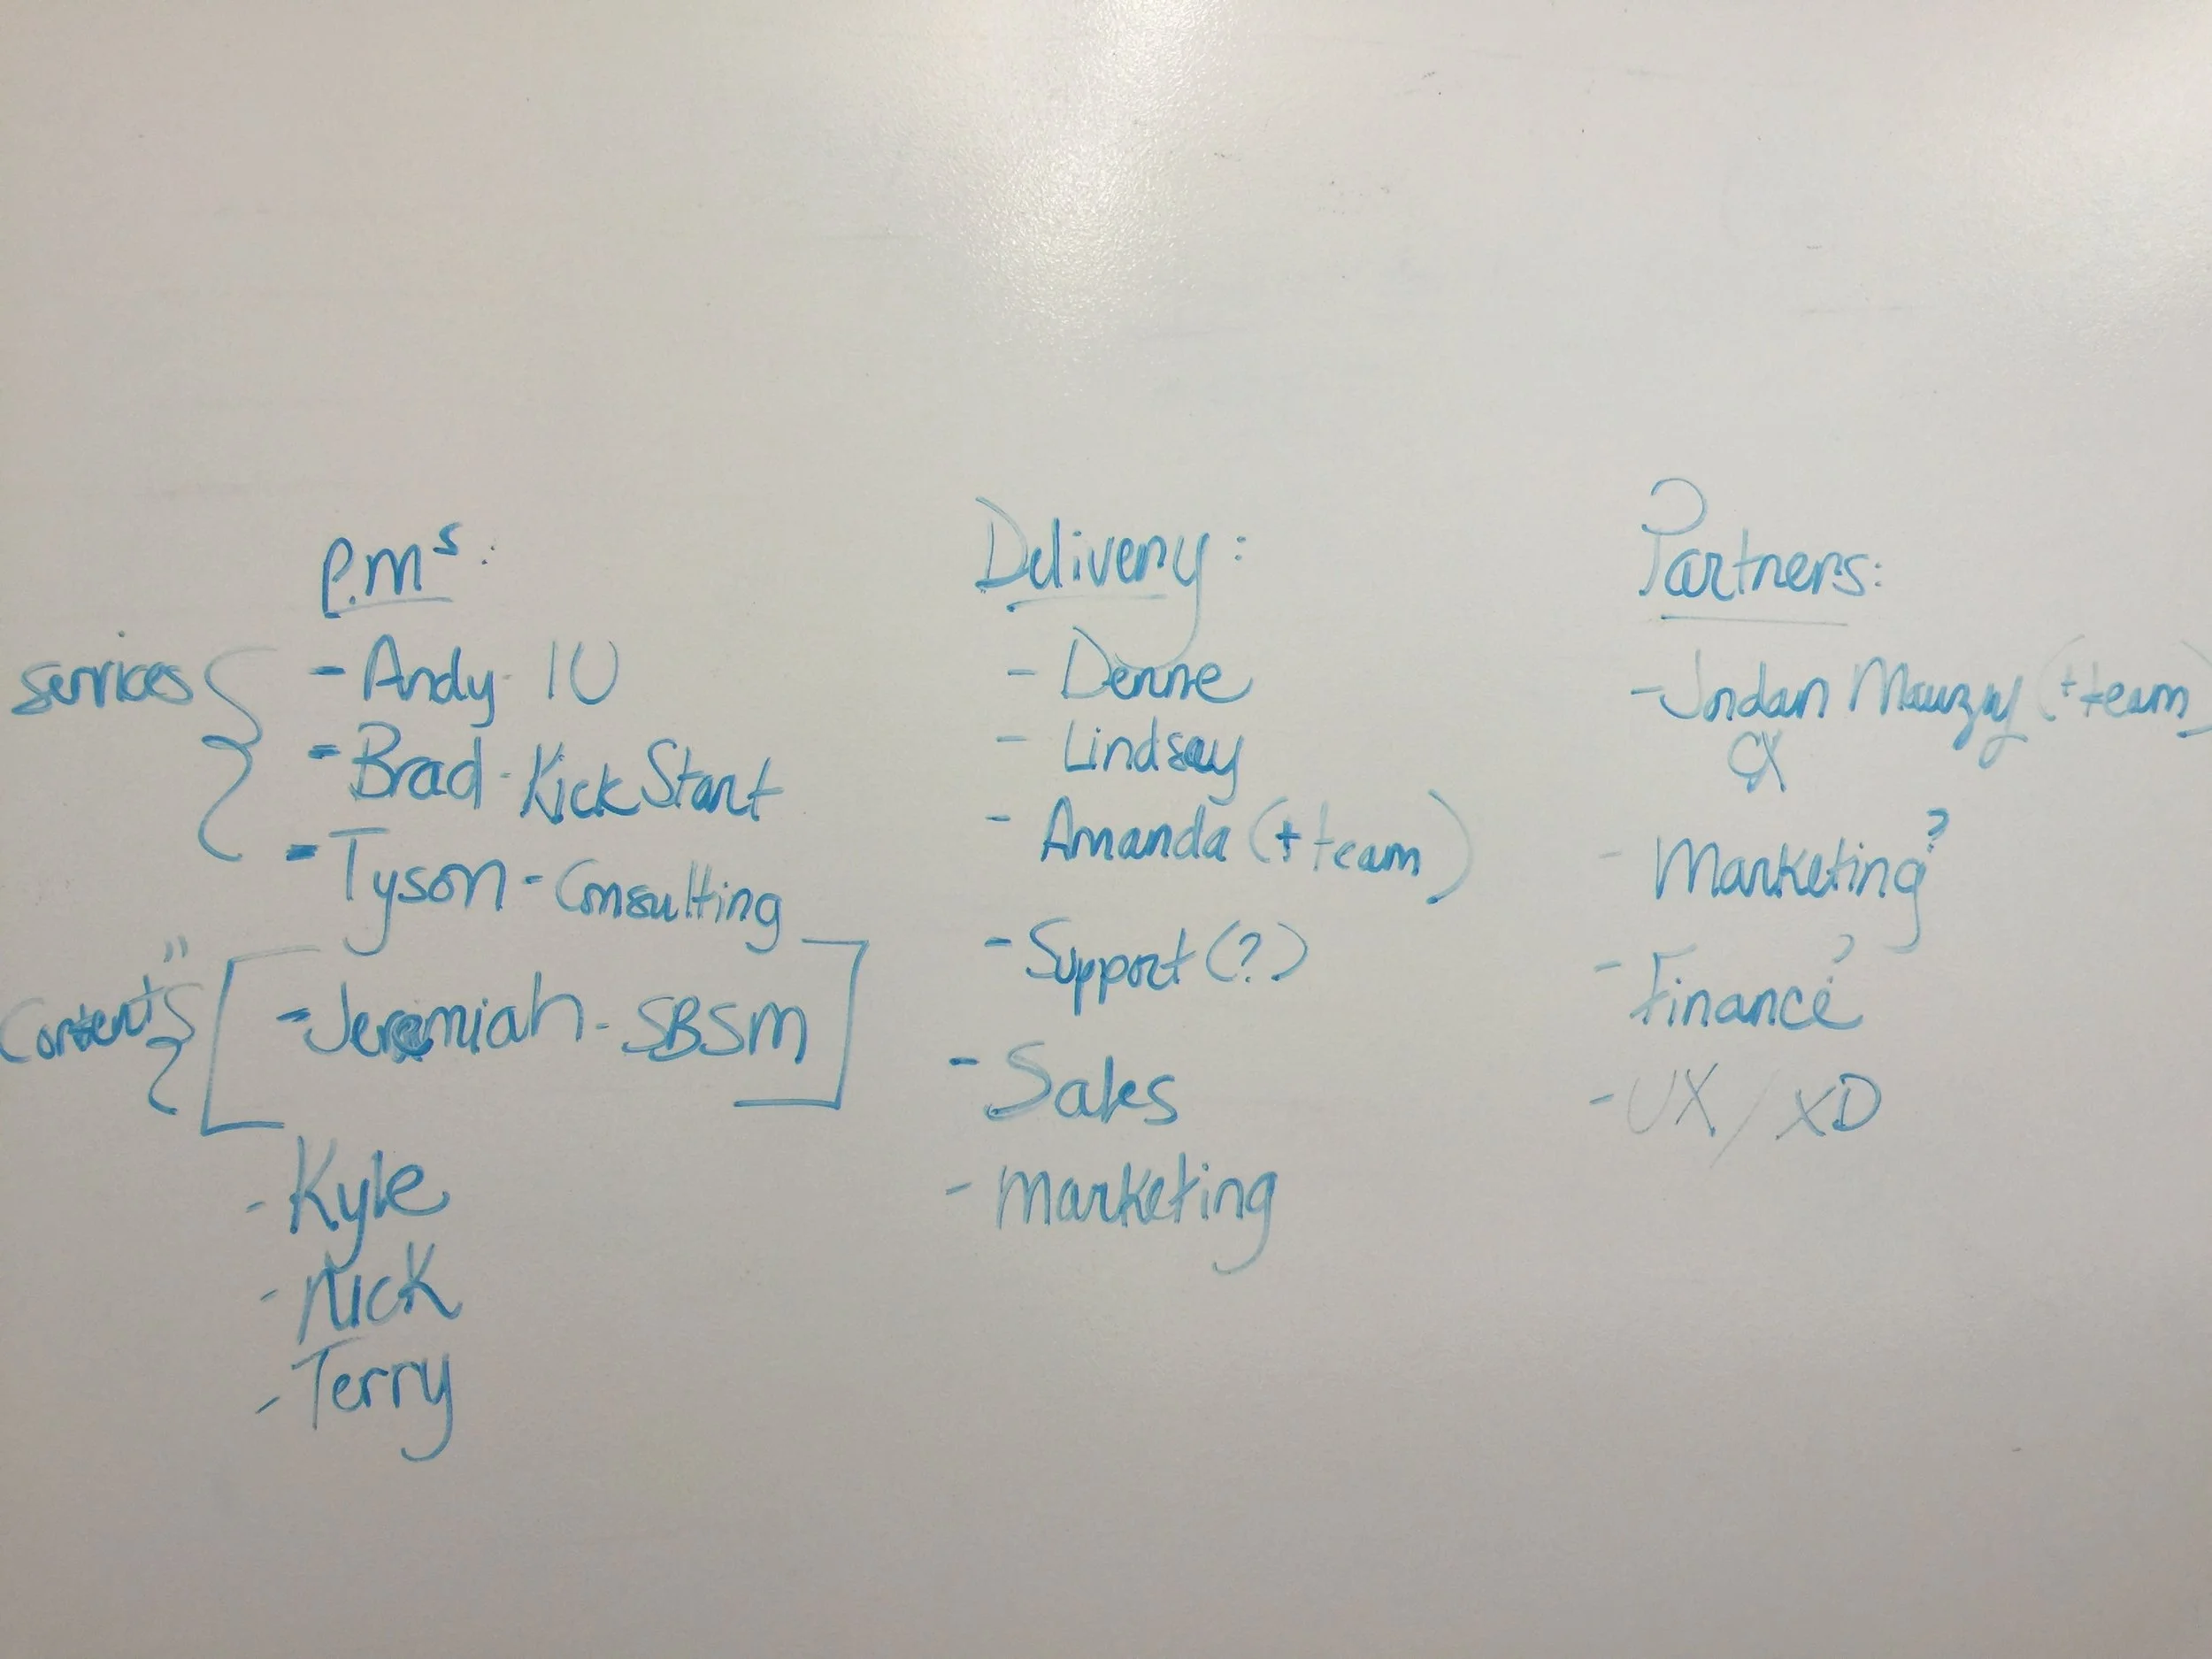 P.Ms:
services { - Andy - IU
- Brad - KickStart
- Tyson - Consulting
Content" { [ - Jeremiah - SBSM ]
- Kyle
- Nick
- Terry
Delivery:
- Denne
- Lindsay
- Amanda (+ team)
- Support (?)
- Sales
- Marketing
Partners:
- Jordan Mauzy (+ team)
CX
- Marketing?
- Finance?
- UX / XD